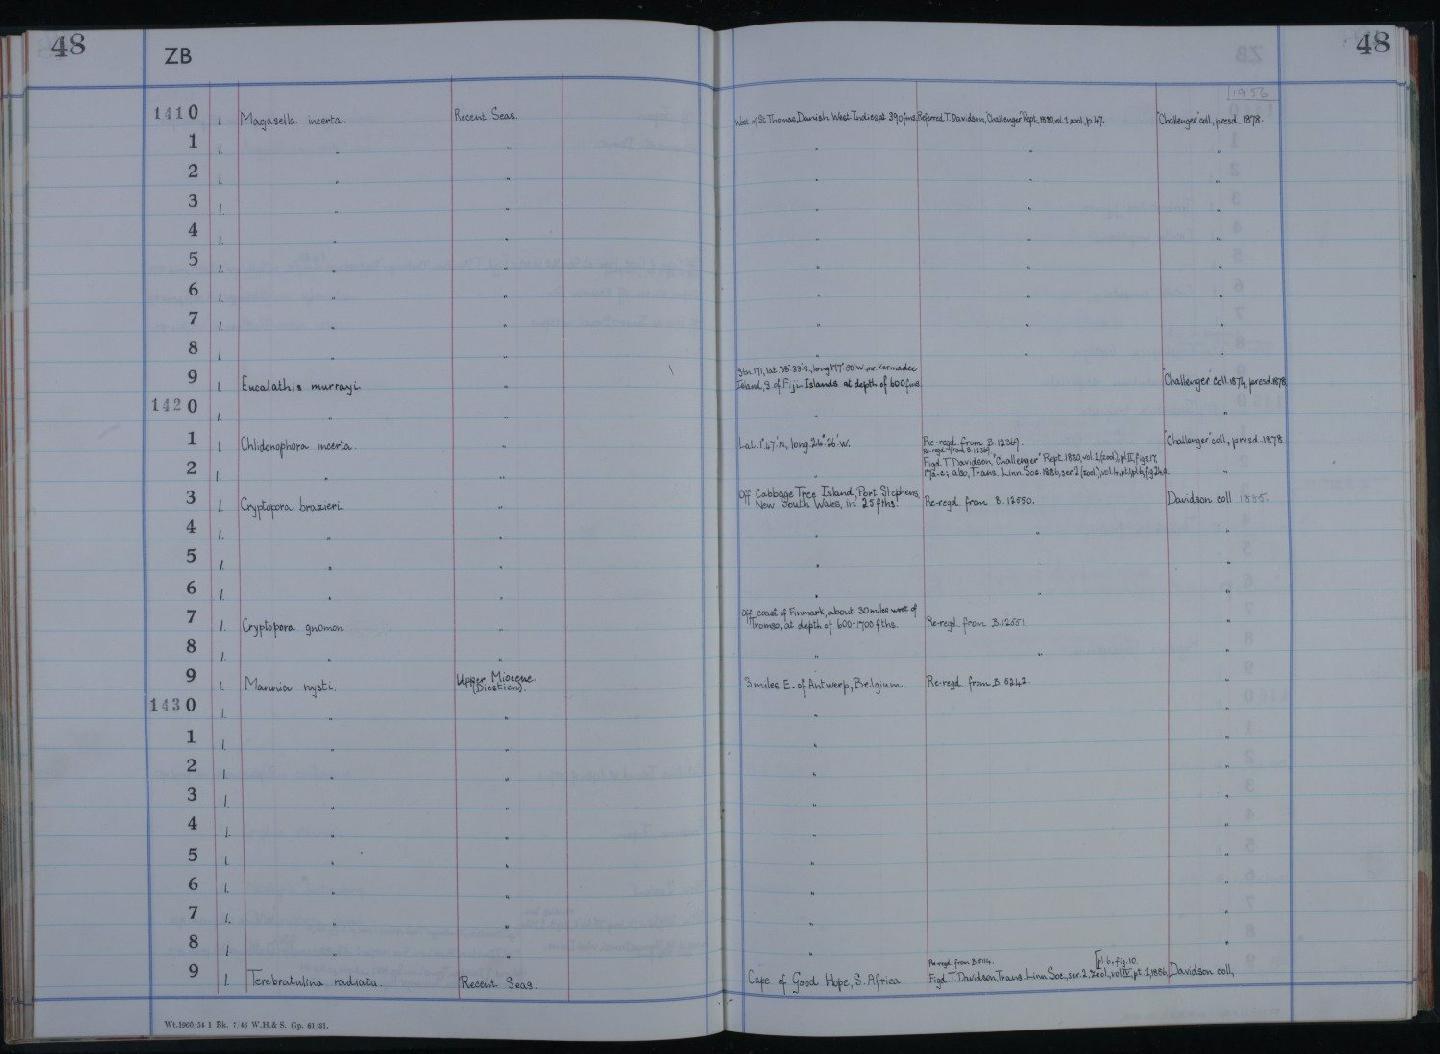 48
ZB
48
1956
1410 1. Magasella incerta. Recent Seas. West of St Thomas, Danish West Indies at 390 fms. Referred T. Davidson, Challenger Rept. 1880, vol. 1, zool., p. 47. "Challenger" coll., presd. 1878.
1 1. " " " " "
2 1. " " " " "
3 1. " " " " "
4 1. " " " " "
5 1. " " " " "
6 1. " " " " "
7 1. " " " " "
8 1. " " " " "
Stn. 171, lat. 28° 33' S, long 177° 50' W, nr. Kermadec
9 1. Eucalathis murrayi. " Island, S of Fiji Islands at depth of 600 fms. "Challenger" coll. 1874, presd. 1878.
1420 1. " " " "
1 1. Chlidonophora incerta. " Lat. 1° 47' N, long. 24° 26' W. Re-regd. from B. 12369. "Challenger" coll., presd. 1878
Re-regd. from B. 12369.
Figd. T. Davidson, "Challenger" Rept. 1880, vol. 1 (zool), pl. II, figs. 17,
2 1. " " " 17a-c; also, Trans. Linn. Soc. 1886, ser 2 (zool), vol. 4, pt. 1, "
Off Cabbage Tree Island, Port Stephens,
3 1. Cryptopora brazieri. " New South Wales, in 25 fths. Re-regd. from B. 12550. Davidson coll 1885.
4 1. " " " " "
5 1. " " " "
6 1. " " " " "
Off coast of Finmark, about 30 miles west of
7 1. Cryptopora gnomon " Tromso, at depth of 600-1700 fths. Re-regd. from B. 12551 "
8 1. " " " " "
9 1. Mannia nysti. Upper Miocene. 3 miles E. of Antwerp, Belgium. Re-regd. from B 5242. "
(Diestian).
1430 1. " " " "
1 1. " " " "
2 1. " " " "
3 1. " " " "
4 1. " " " "
5 1. " " " "
6 1. " " " "
7 1. " " " "
8 1. " " " "
Re-regd. from [pl. 6, fig. 10.
9 1. Terebratulina radiata. Recent Seas. Cape of Good Hope, S. Africa Figd. T. Davidson, Trans. Linn. Soc., ser. 2, Zool., vol IV, pt. 1, 1886, Davidson coll.,
Wt. 1960/54 1 Bk. 7/45 W.H.& S. Gp. 61/31.